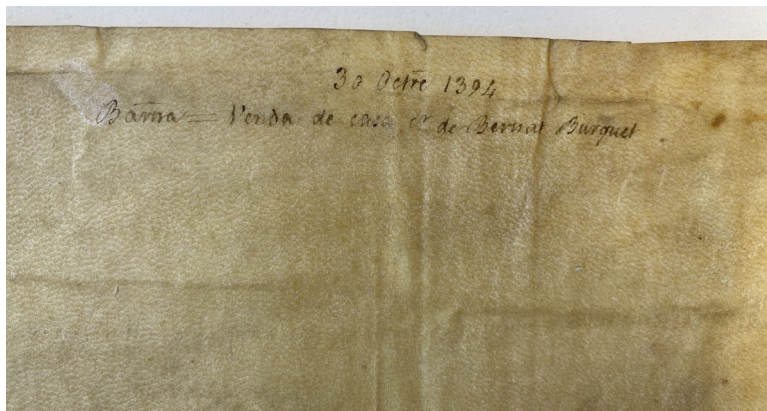 30 Octre 1394
Barna = Venda de casa &ª de Bernat Burguet